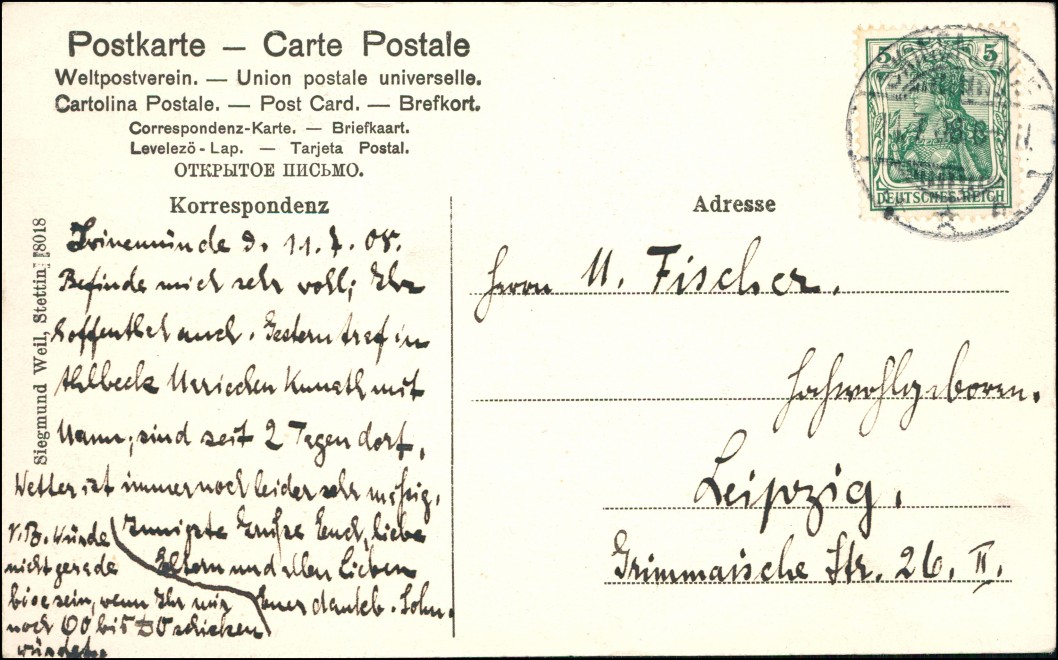 Postkarte – Carte Postale
Weltpostverein. — Union postale universelle.
Cartolina Postale. — Post Card. — Brefkort.
Correspondenz-Karte. — Briefkaart.
Levelező-Lap. — Tarjeta Postal.
ОТКРЫТОЕ ПИСЬМО.
Korrespondenz
Siegmund Weil, Stettin. 18018
d. 11.7.08.
Befinde mich sehr wohl; Ihr
hoffentlich auch. Gestern traf in
Ahlbeck Kunath mit
Mann; sind seit 2 Tagen dort.
Wetter ist immer noch leider sehr mäßig.
Innigste Grüße Euch, liebe
Eltern und allen Lieben
Euer dankb. Sohn.
würde
nicht gerade
böse sein, wenn Ihr mir
noch bis schicken
würdet.
Adresse
5 5
DEUTSCHES REICH
Herrn M. Fischer.
Hochwohlgeboren.
Leipzig.
Grimmaische Str. 26. II.